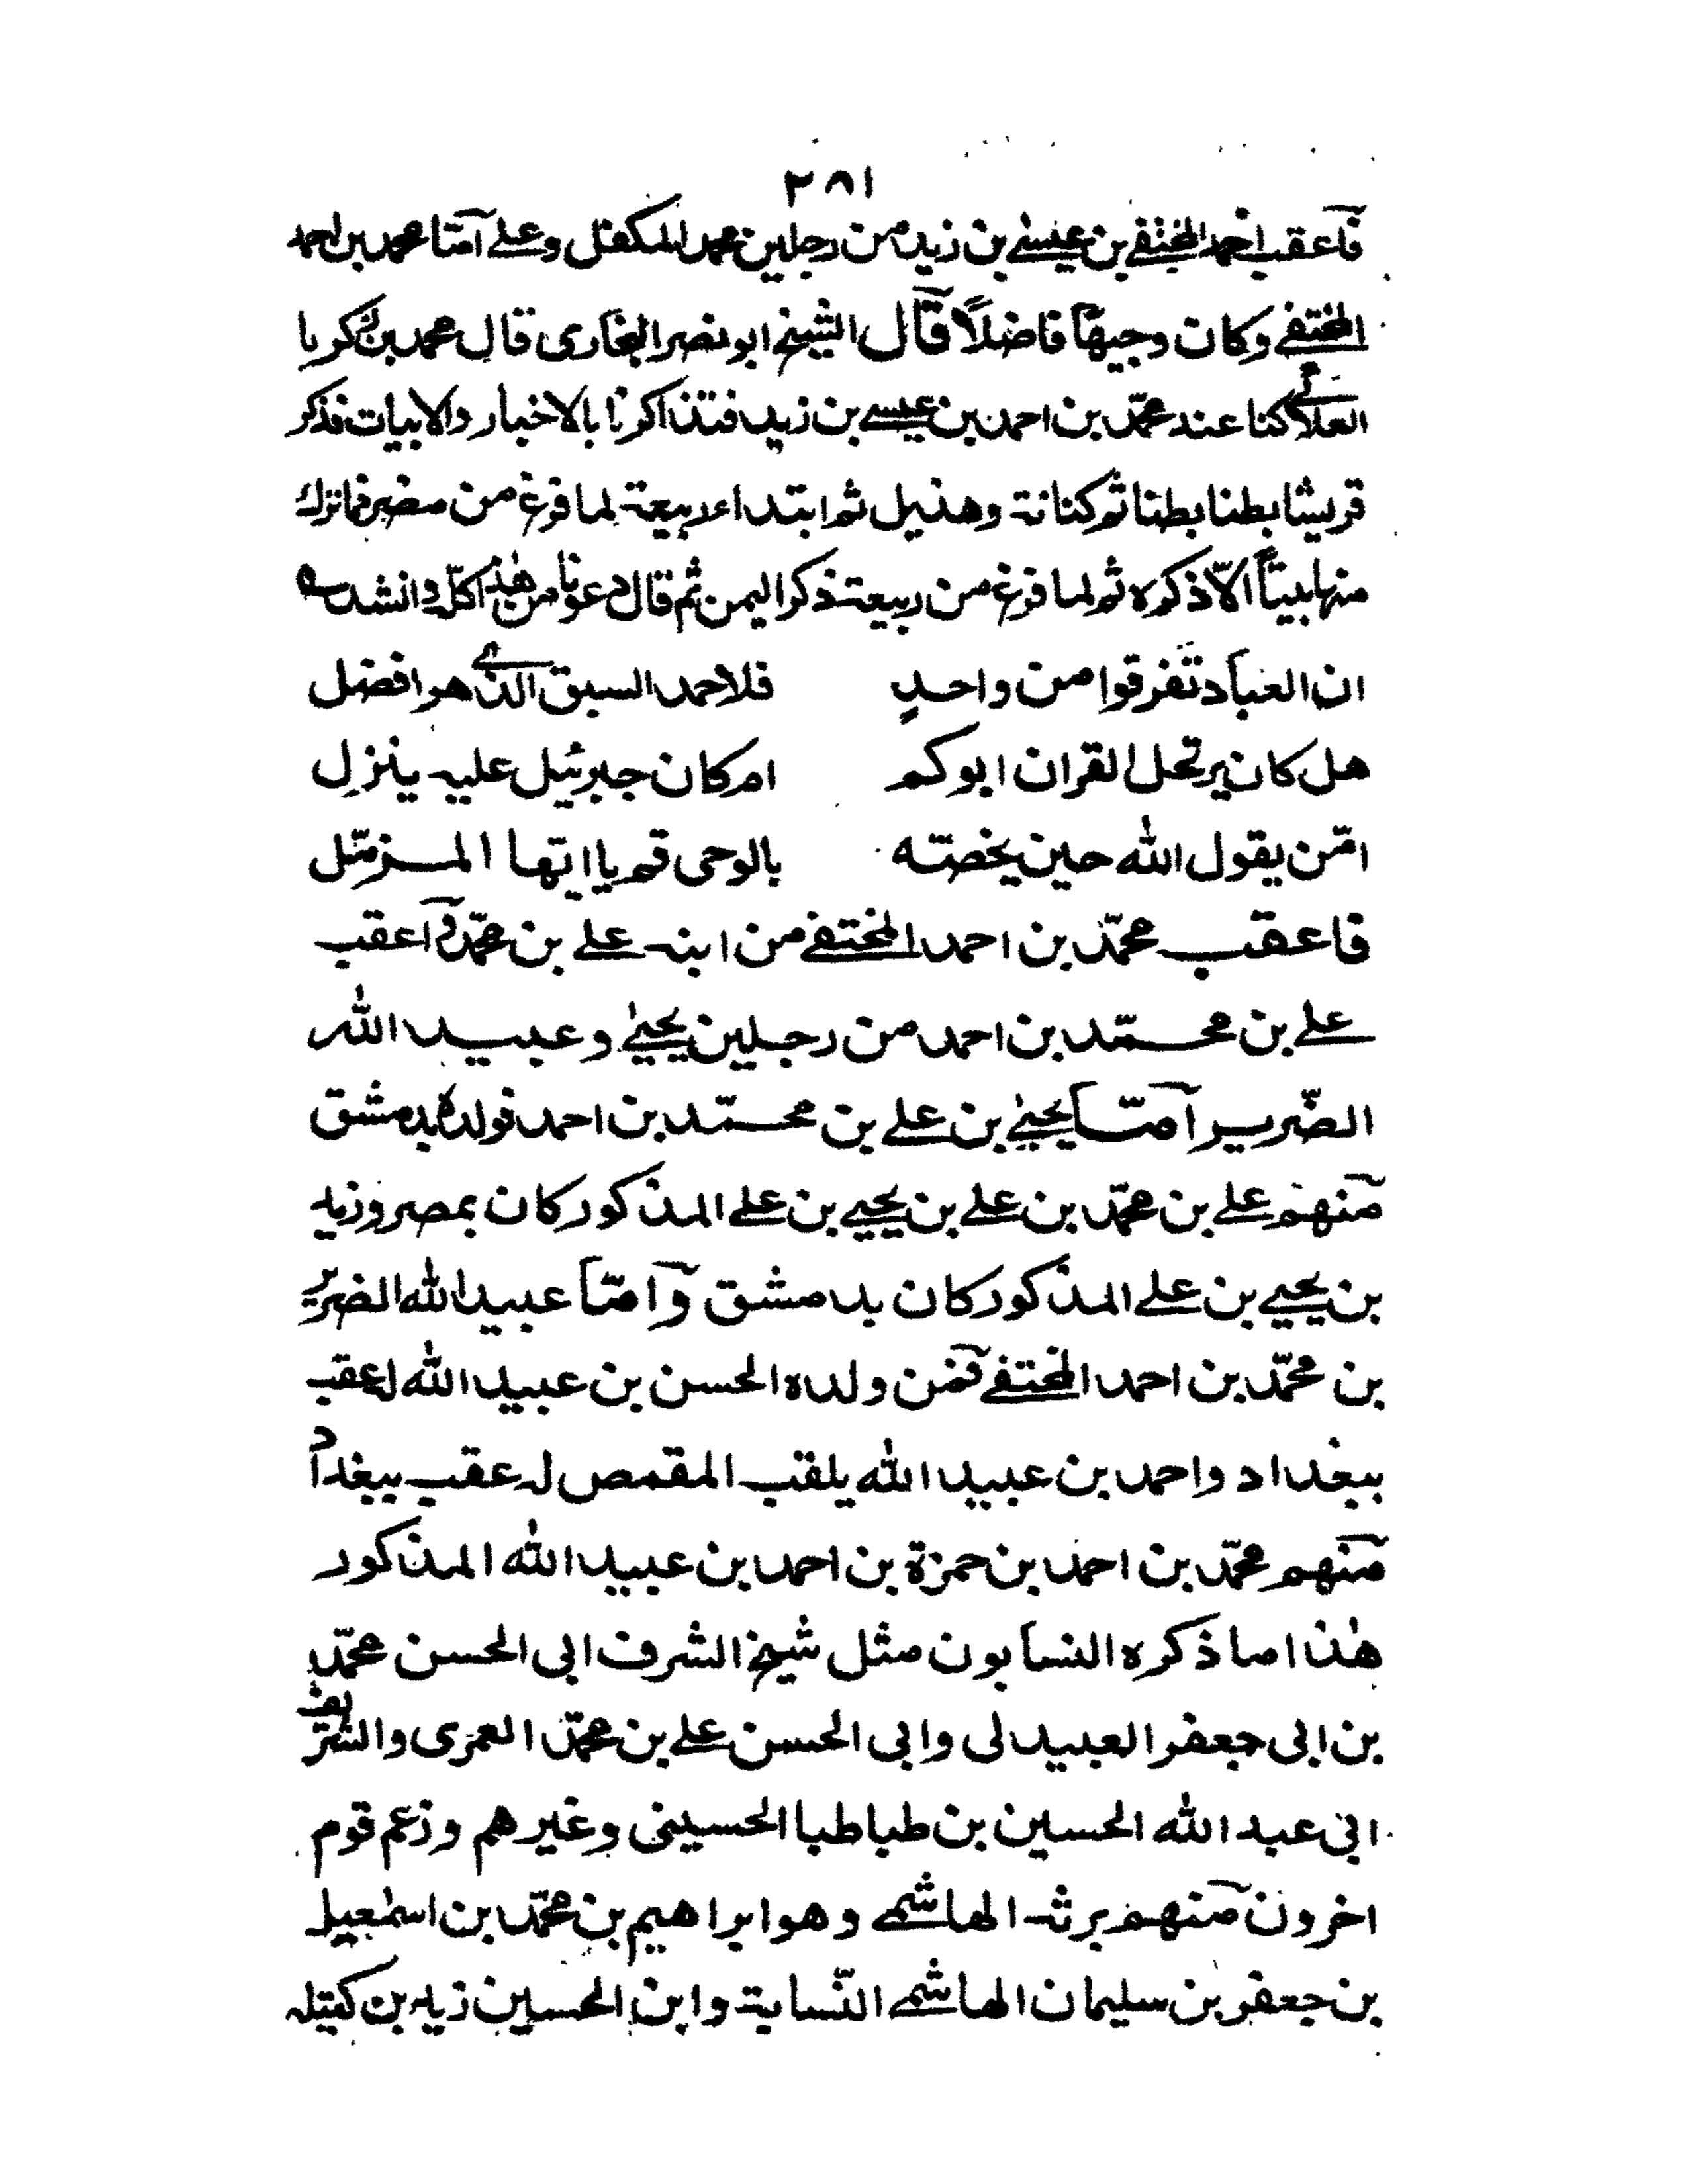 ٢٨١
فاعقب احمد المختفي بن عيسى بن زيد من رجلين محمد المكفل وعلي آمّا محمد بن احمد
المختفي وكان وجيهاً فاضلاً قال الشيخ ابو نصر البخاري قال محمد بن زكريا
العلائي كنا عند محمّد بن احمد بن عيسى بن زيد فتذاكرنا بالاخبار والابيات فذكر
قريشا بطنا بطنا ثم كنانة وهذيل ثم ابتداء ربيعة لما فرغ من مضر فما ترك
منها بيتاً الّا ذكره ثم لما فرغ من ربيعة ذكر اليمن ثم قال دعونا من هذا كلّه وانشد
ان العباد تفرقوا من واحدٍ فلاحمد السبق الذي هو افضل
هل كان يرتحل القران ابوكم ام كان جبرئيل عليه ينزل
امّن يقول الله حين يخصّه بالوحى قم يا ايّها المزمّل
فاعقب محمّد بن احمد المختفي من ابنه علي بن محمّد وآعقب
علي بن محمّد بن احمد من رجلين يحيى وعبيد الله
الضّرير آمّا يحيى بن علي بن محمّد بن احمد فولده بدمشق
منهم علي بن محمّد بن علي بن يحيى بن علي المذكور كان بمصر وزيد
بن يحيى بن علي المذكور كان بدمشق وآمّا عبيد الله الضرير
بن محمّد بن احمد المختفي فمن ولده الحسن بن عبيد الله له عقب
ببغداد واحمد بن عبيد الله يلقب المقمص له عقب ببغداد
منهم محمّد بن احمد بن حمزة بن احمد بن عبيد الله المذكور
هذا ما ذكره النسابون مثل شيخ الشرف ابى الحسن محمّد
بن ابى جعفر العبيدلى وابى الحسن علي بن محمّد العمرى والشريف
ابى عبد الله الحسين بن طباطبا الحسينى وغيرهم وزعم قوم
اخرون منهم برثه الهاشمي وهو ابراهيم بن محمّد بن اسمعيل
بن جعفر بن سليمان الهاشمي النّسابة وابن الحسين زيد بن كتيله